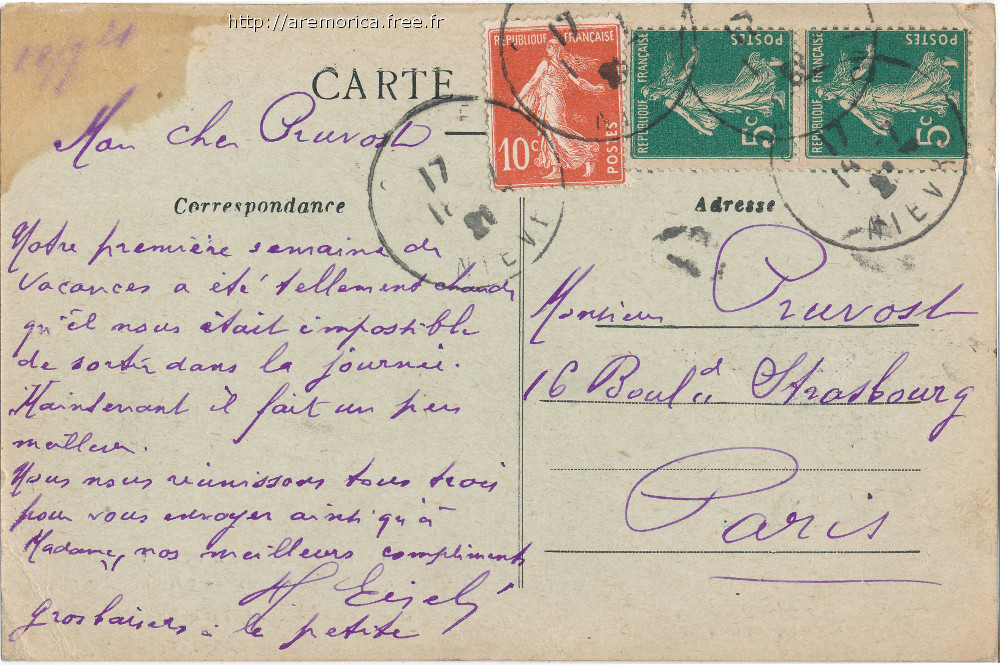 http://aremorica.free.fr
CARTE
REPUBLIQUE FRANÇAISE
10c
POSTES
REPUBLIQUE FRANÇAISE
5c
POSTES
REPUBLIQUE FRANÇAISE
5c
POSTES
17
NIEVR
17
17
NIEVR
Mon cher Pruvost
Correspondance
Notre première semaine de
vacances a été tellement chaude
qu'il nous était impossible
de sortir dans la journée.
Maintenant il fait un peu
meilleur.
Nous nous réunissons tous trois
pour vous envoyer ainsi qu'à
Madame, nos meilleurs compliments
Gros baisers à la petite
Adresse
Monsieur Pruvost
16 Bould Strasbourg
Paris